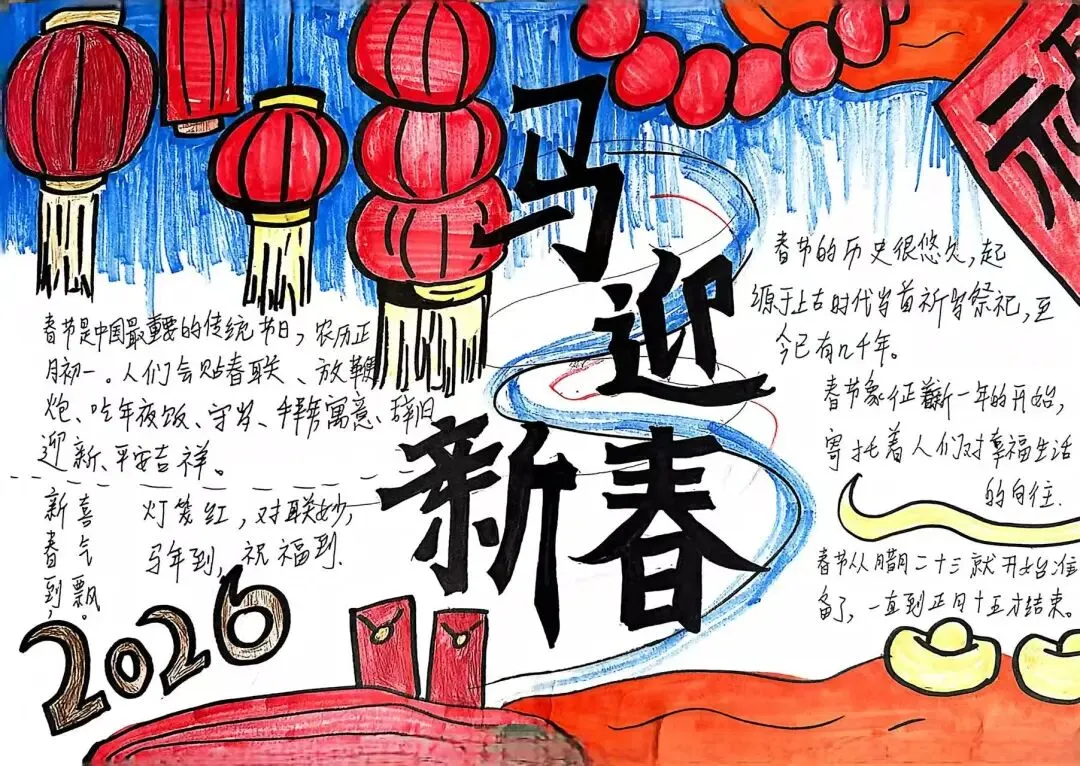 马
迎
新春
春节是中国最重要的传统节日，农历正
月初一。人们会贴春联、放鞭
炮、吃年夜饭、守岁、寓意、辞旧
迎新、平安吉祥。
新春到，
喜气飘。
灯笼红，对联妙，
马年到，祝福到.
2026
春节的历史很悠久，起
源于上古时代岁首祈岁祭祀，至
今已有几千年。
春节象征着新一年的开始，
寄托着人们对幸福生活
的向往.
春节从腊月二十三就开始准
备了，一直到正月十五才结束。